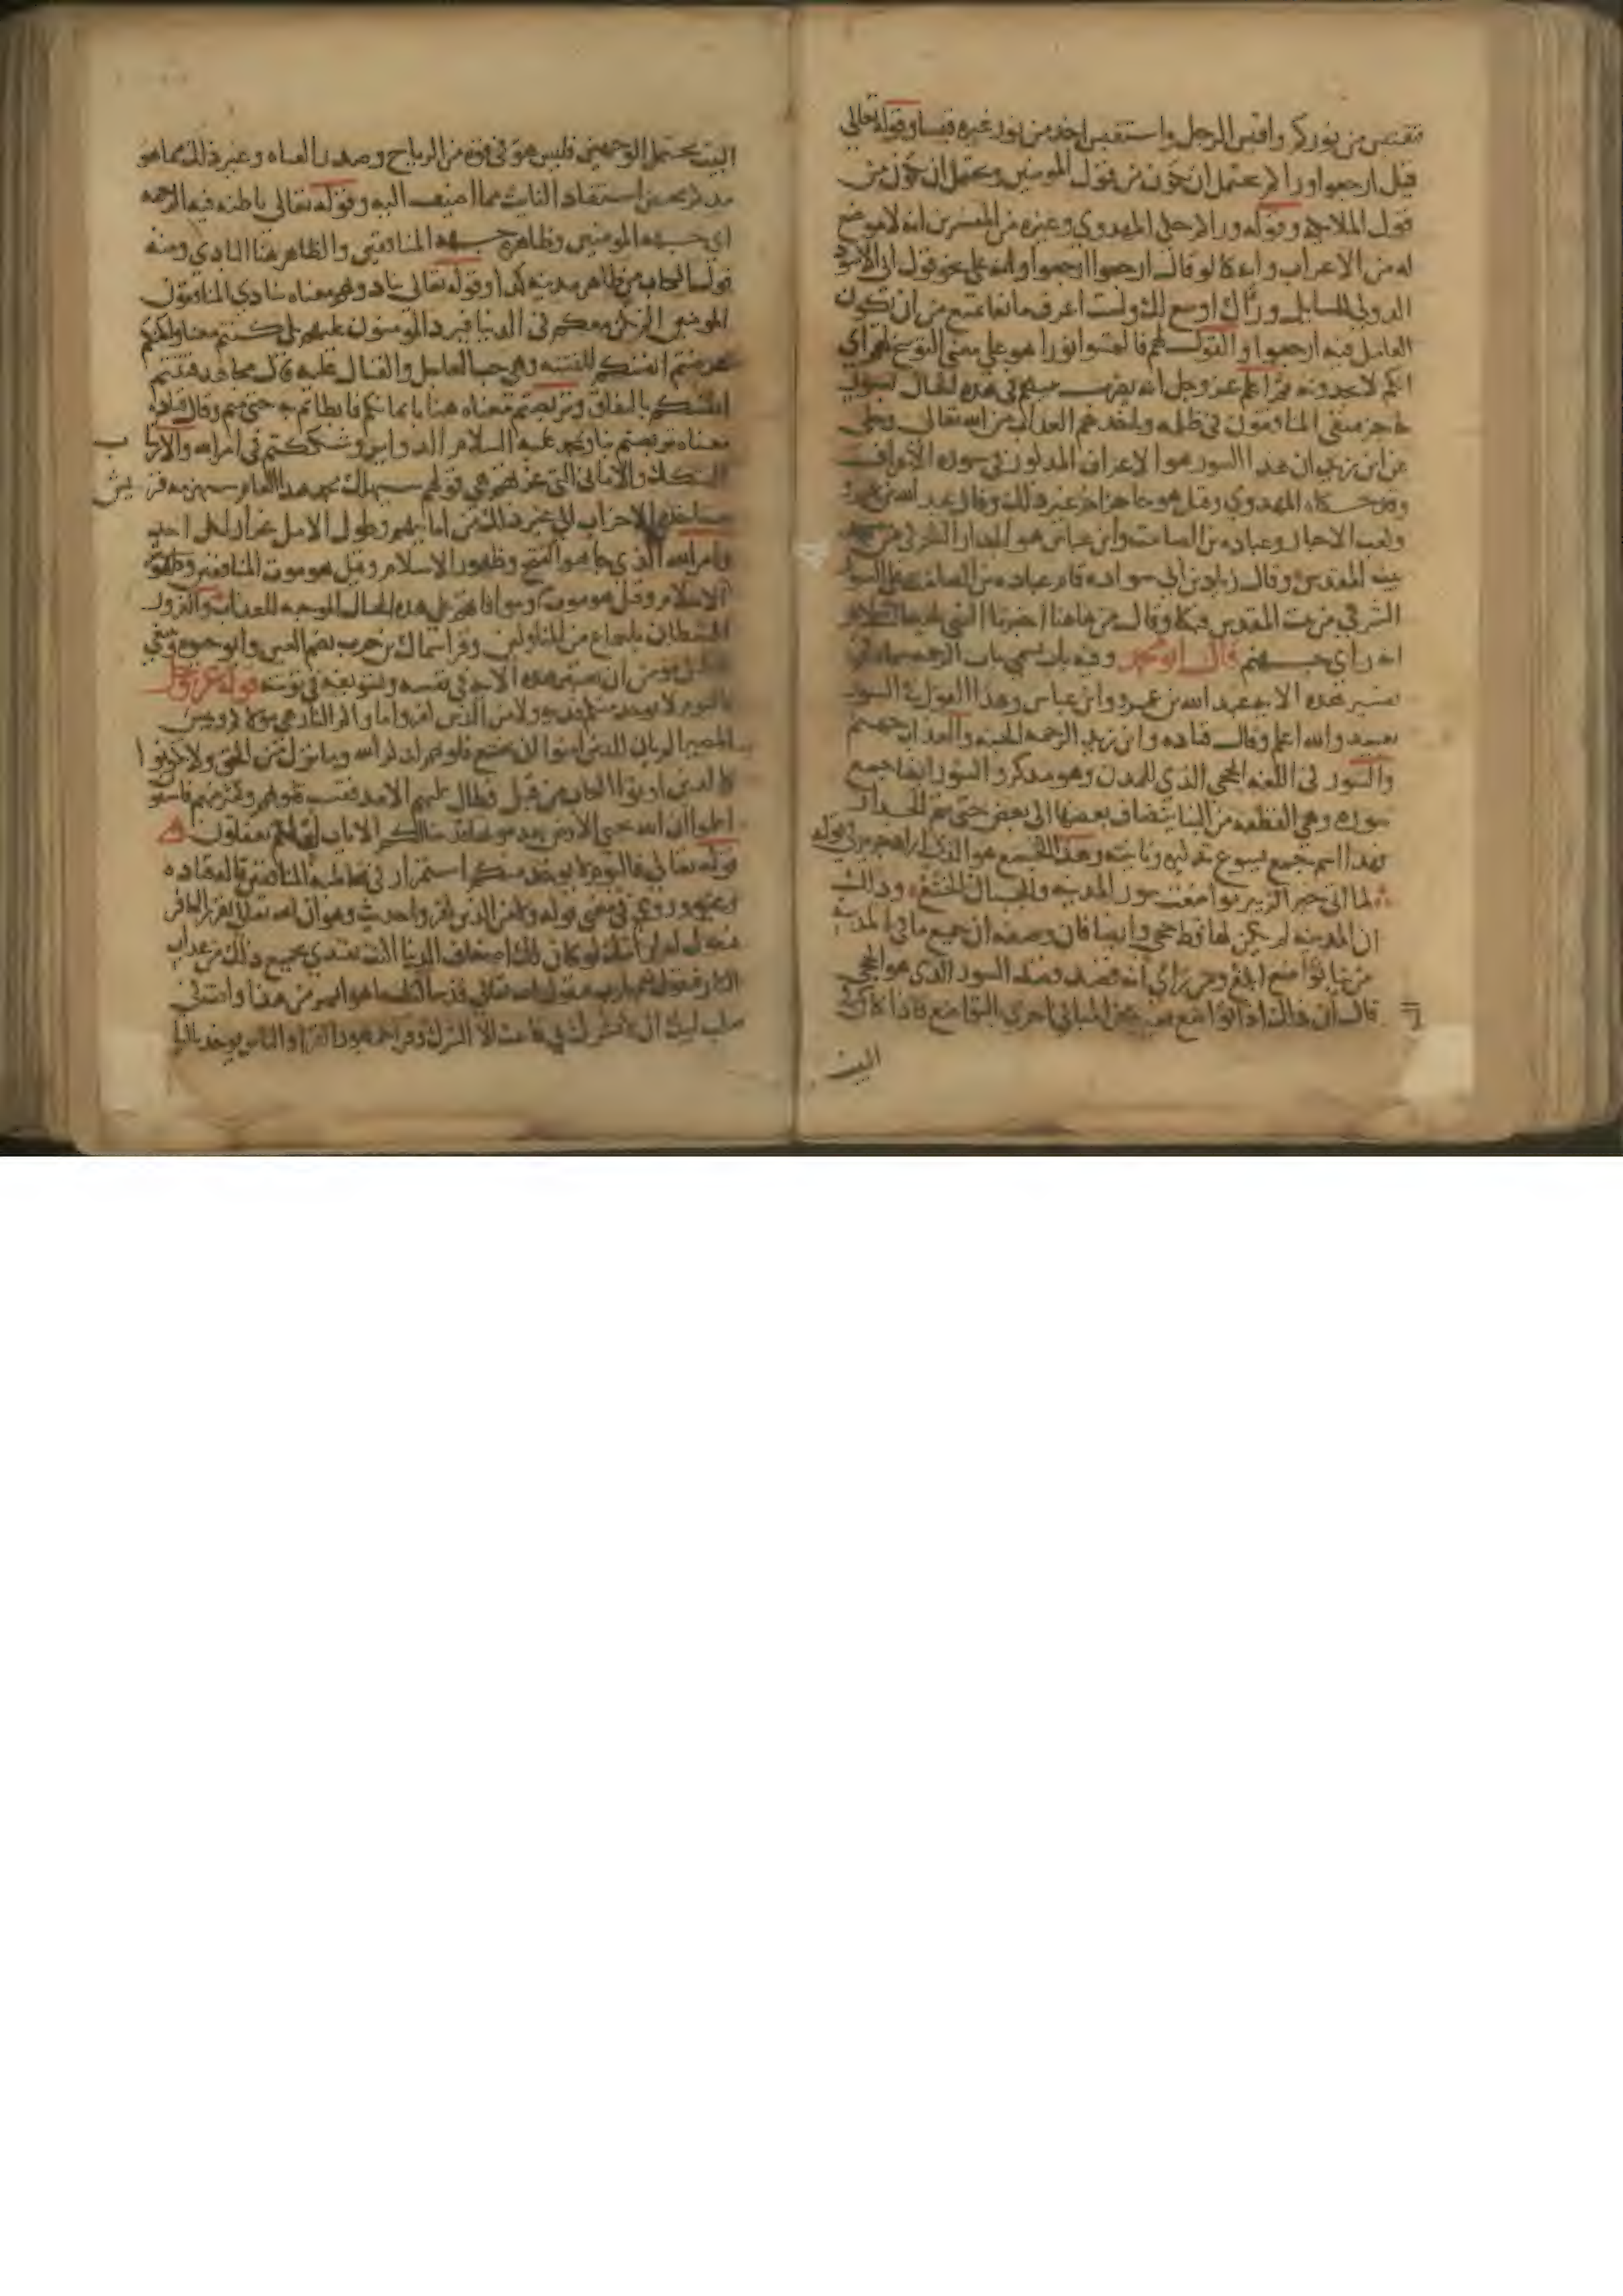 نقتبس من نوركم واقبس الرجل واستقبس اخذ من نور غيره قبسا وقوله تعالي
قيل ارجعوا وراكم يحتمل ان يكون من قول المومنين ويحتمل ان يكون من
قول الملايكه وقوله وراكم حكي المهدوي وغيره من المفسرين انه لا موضع
له من الاعراب وانه كما لو قال ارجعوا ارجعوا وانه علي نحو قول ابي الاسود
الدولي للسايل وراك اوسع لك ولست اعرف مانعا يمنع من ان يكون
العامل فيه ارجعوا والقول لهم فالتمسوا نورا هو علي معني التوبيخ لهم اي
انكم لا تجدونه ثم اعلم عز وجل انه يضرب بينهم في هذه الحال بسور
حاجز فيبقي المنافقون في ظلمه وياخذهم العذاب من الله تعالي وحكي
عن ابن زيد ان هذا السور هو الاعراف المذكور في سوره الاعراف
وقد حكاه المهدوي وقيل هو حاجز اخر غير ذلك وقال عبد الله بن عمرو
وكعب الاحبار وعباده بن الصامت وابن عباس هو الجدار الشرقي من مسجد
بيت المقدس وقال زياد بن ابي سواده قام عباده بن الصامت علي السور
الشرقي من بيت المقدس فبكا وقال من هاهنا اخبرنا النبي عليه السلام
انه راي جهنم قال ابو محمد وفيه باب يسمي باب الرحمه سماه في
تفسير هذه الايه عبد الله بن عمرو وابن عباس وهذا القول في السور
بعيد والله اعلم وقال قتاده وابن زيد الرحمه الجنه والعذاب جهنم
والسور في اللغه الحجي الذي للمدن وهو مذكر والسور ايضا جمع
سوره وهي القطعه من البنا يضاف بعضها الي بعض حتي يتم الجدار
فهذا اسم جمع يسوغ تذكيره وتانيثه وهذا الجمع هو الذي اراد جرير في قوله
لما اتي خبر الزبير تواضعت سور المدينه والجبال الخشع وذلك
ان المدينه لم يكن لها قط حجي وايضا فان وصفه ان جميع ما في المدينه
من بنا تواضع ابلغ ومن راي انه قصد قصد السور الذي هو الحجي
قال ان ذلك اذا تواضع فغيره من المباني احري بالتواضع فاذا كان
البيت
البيت يحتمل الوجهين فليس هو في قوه مر الرياح وصدر القناه وغير ذلك مما هو
مذكر محض استفاد التانيث مما اضيف اليه وقوله تعالي باطنه فيه الرحمه
اي جهه المومنين وظاهره جهه المنافقين والظاهر هنا البادي ومنه
قول الكتاب من ظاهر مدينه كذا وقوله تعالي ينادونهم معناه ينادي المنافقون
المومنين الم نكن معكم في الدنيا فيرد المومنون عليهم بلي كنتم معنا ولكنكم
عرضتم انفسكم للفتنه وهي حب العاجل والقتال عليه قال مجاهد فتنتم
انفسكم بالنفاق وتربصتم معناه هنا بايمانكم فابطاتم به حتي متم وقال قتاده
معناه تربصتم بنا وبمحمد عليه السلام الدواير وشككتم في امر الله والارتياب
الشك والاماني التي غرتهم هي قولهم سيهلك محمد هذا العام ستهزمه قريش
ستاخذه الاحزاب الي غير ذلك من امانيهم وطول الامل غرار لكل احد
وامر الله الذي جا هو الفتح وظهور الاسلام وقيل هو موت المنافقين
الاسلام وقيل هو موت المنافقين وموافاتهم علي هذه الحال الموجبه للعذاب والغرور
الشيطان باجماع من المتاولين وقرا سماك بن حرب بضم الغين وابو حيوه وينبغي
لكل مومن ان يعتبر هذه الايه في نفسه وتسويفه في توبته قوله عز وجل
فاليوم لا يوخذ منكم فديه ولا من الذين كفروا ماواكم النار هي مولاكم وبيس
المصير الم يان للذين امنوا ان تخشع قلوبهم لذكر الله وما نزل من الحق ولا يكونوا
كالذين اوتوا الكتاب من قبل فطال عليهم الامد فقست قلوبهم وكثير منهم فاسقون
اعلموا ان الله يحيي الارض بعد موتها قد بينا لكم الايات لعلكم تعقلون
قوله تعالي فاليوم لا يوخذ منكم استمرار في مخاطبه المنافقين قاله قتاده
وغيره وروي في معني قوله ولا من الذين كفروا حديث وهو ان الله تعالي يقرر الكافر
فيقول له ارايتك لو كان لك اضعاف الدنيا اكنت تفتدي بجميع ذلك من عذاب
النار فيقول نعم يا رب فيقول الله تعالي قد سالتك ما هو ايسر من هذا وانت في
صلب ابيك ادم ان لا تشرك بي فابيت الا الشرك وقرا جمهور القرا والناس يوخذ باليا